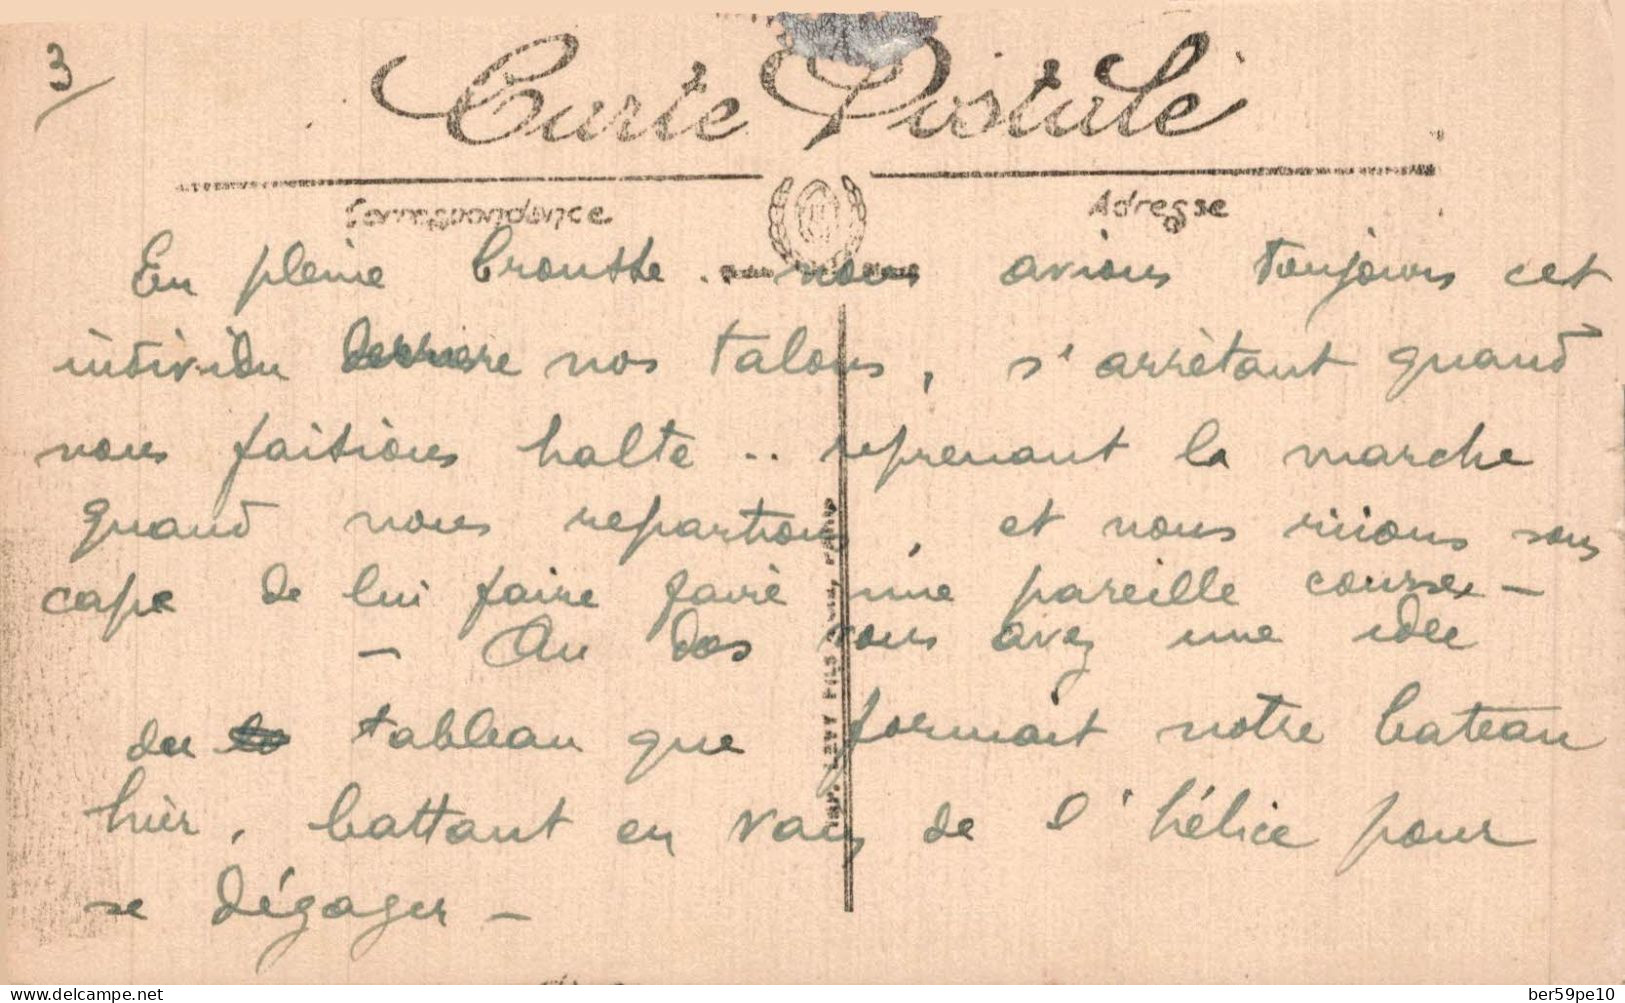 3/
Carte Postale
Correspondance
Adresse
En pleine brousse .. nous avions toujours cet
individu derrière nos talons, s'arrêtant quand
nous faisions halte .. reprenant la marche
quand nous repartions, et nous riions sous
cape de lui faire faire une pareille course –
– Au dos vous avez une idée
du tableau que formait notre bateau
hier, battant en vain de l'hélice pour
se dégager –
IMP. LEVY FILS & Cie, PARIS
www.delcampe.net
ber59pe10